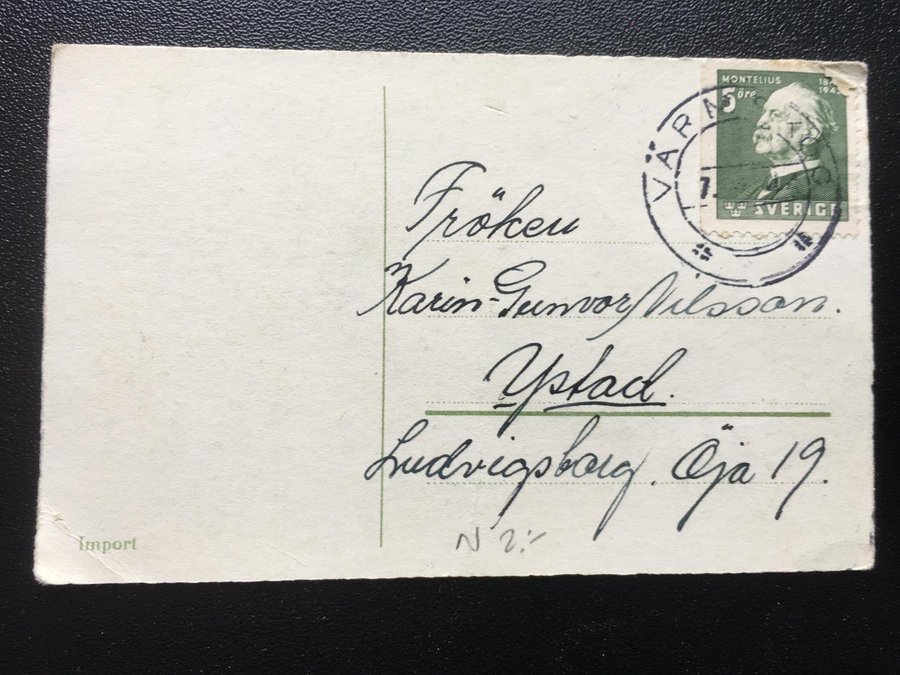 MONTELIUS
5 öre
SVERIGE
VÄRM
7.
Fröken
Karin-Gunvor Nilsson.
Ystad.
Ludvigsborg. Öja 19.
Import
N 2:-